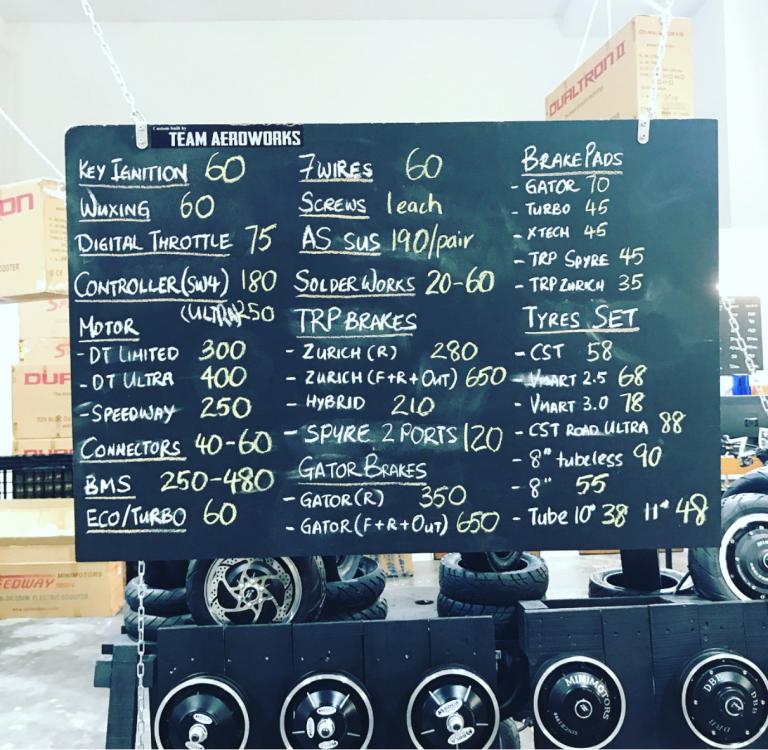 Custom built by
TEAM AEROWORKS
KEY IGNITION 60
WUXING 60
DIGITAL THROTTLE 75
CONTROLLER(SW4) 180
(ULTRA) 250
MOTOR
- DT LIMITED 300
- DT ULTRA 400
- SPEEDWAY 250
CONNECTORS 40-60
BMS 250-480
ECO/TURBO 60
7WIRES 60
SCREWS 1each
AS SUS 190/pair
SOLDER WORKS 20-60
TRP BRAKES
- ZURICH (R) 280
- ZURICH (F+R+OUT) 650
- HYBRID 210
- SPYRE 2 PORTS 120
GATOR BRAKES
- GATOR (R) 350
- GATOR (F+R+OUT) 650
BRAKE PADS
- GATOR 70
- TURBO 45
- XTECH 45
- TRP SPYRE 45
- TRP ZURICH 35
TYRES SET
- CST 58
- VMART 2.5 68
- VMART 3.0 78
- CST ROAD ULTRA 88
- 8" tubeless 90
- 8" 55
- Tube 10" 38 11" 48
DUALTRON II
EEDWAY MINIMOTORS
MINIMOTORS